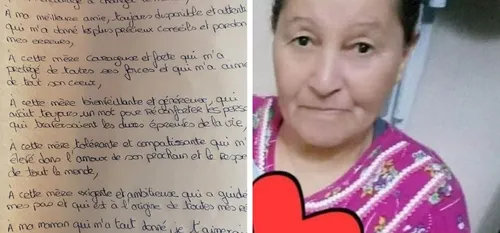 A ma meilleure amie, toujours disponible et attentive
qui m'a donné les plus précieux conseils et pardonné
mes erreurs,
A cette mère courageuse et forte qui m'a
protégé de toutes ses forces et qui m'a aimé
de tout son coeur,
A cette mère bienveillante et généreuse, qui
avait toujours un mot pour réconforter les
qui traversaient les dures épreuves de la vie,
A cette mère tolérante et compatissante qui m'
élevé dans l'amour de son prochain et le
de tout le monde,
A cette mère exigeante et ambitieuse qui a guidé
mes pas et qui est à l'origine de toutes mes
A ma maman qui m'a tout donné, je t'aimerai